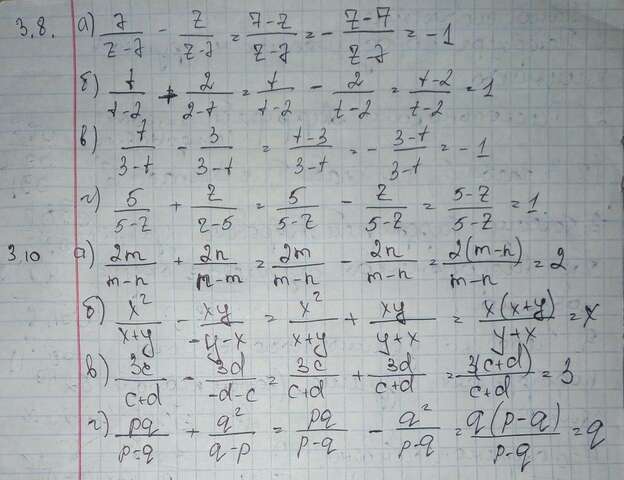 3.8. а) 7/(z-7) - z/(z-7) = (7-z)/(z-7) = - (z-7)/(z-7) = -1
б) t/(t-2) + 2/(2-t) = t/(t-2) - 2/(t-2) = (t-2)/(t-2) = 1
в) t/(3-t) - 3/(3-t) = (t-3)/(3-t) = - (3-t)/(3-t) = -1
г) 5/(5-z) + z/(z-5) = 5/(5-z) - z/(5-z) = (5-z)/(5-z) = 1.
3.10 а) 2m/(m-n) + 2n/(n-m) = 2m/(m-n) - 2n/(m-n) = 2(m-n)/(m-n) = 2
б) x²/(x+y) - xy/(-y-x) = x²/(x+y) + xy/(y+x) = x(x+y)/(y+x) = x
в) 3c/(c+d) - 3d/(-d-c) = 3c/(c+d) + 3d/(c+d) = 3(c+d)/(c+d) = 3
г) pq/(p-q) + q²/(q-p) = pq/(p-q) - q²/(p-q) = q(p-q)/(p-q) = q